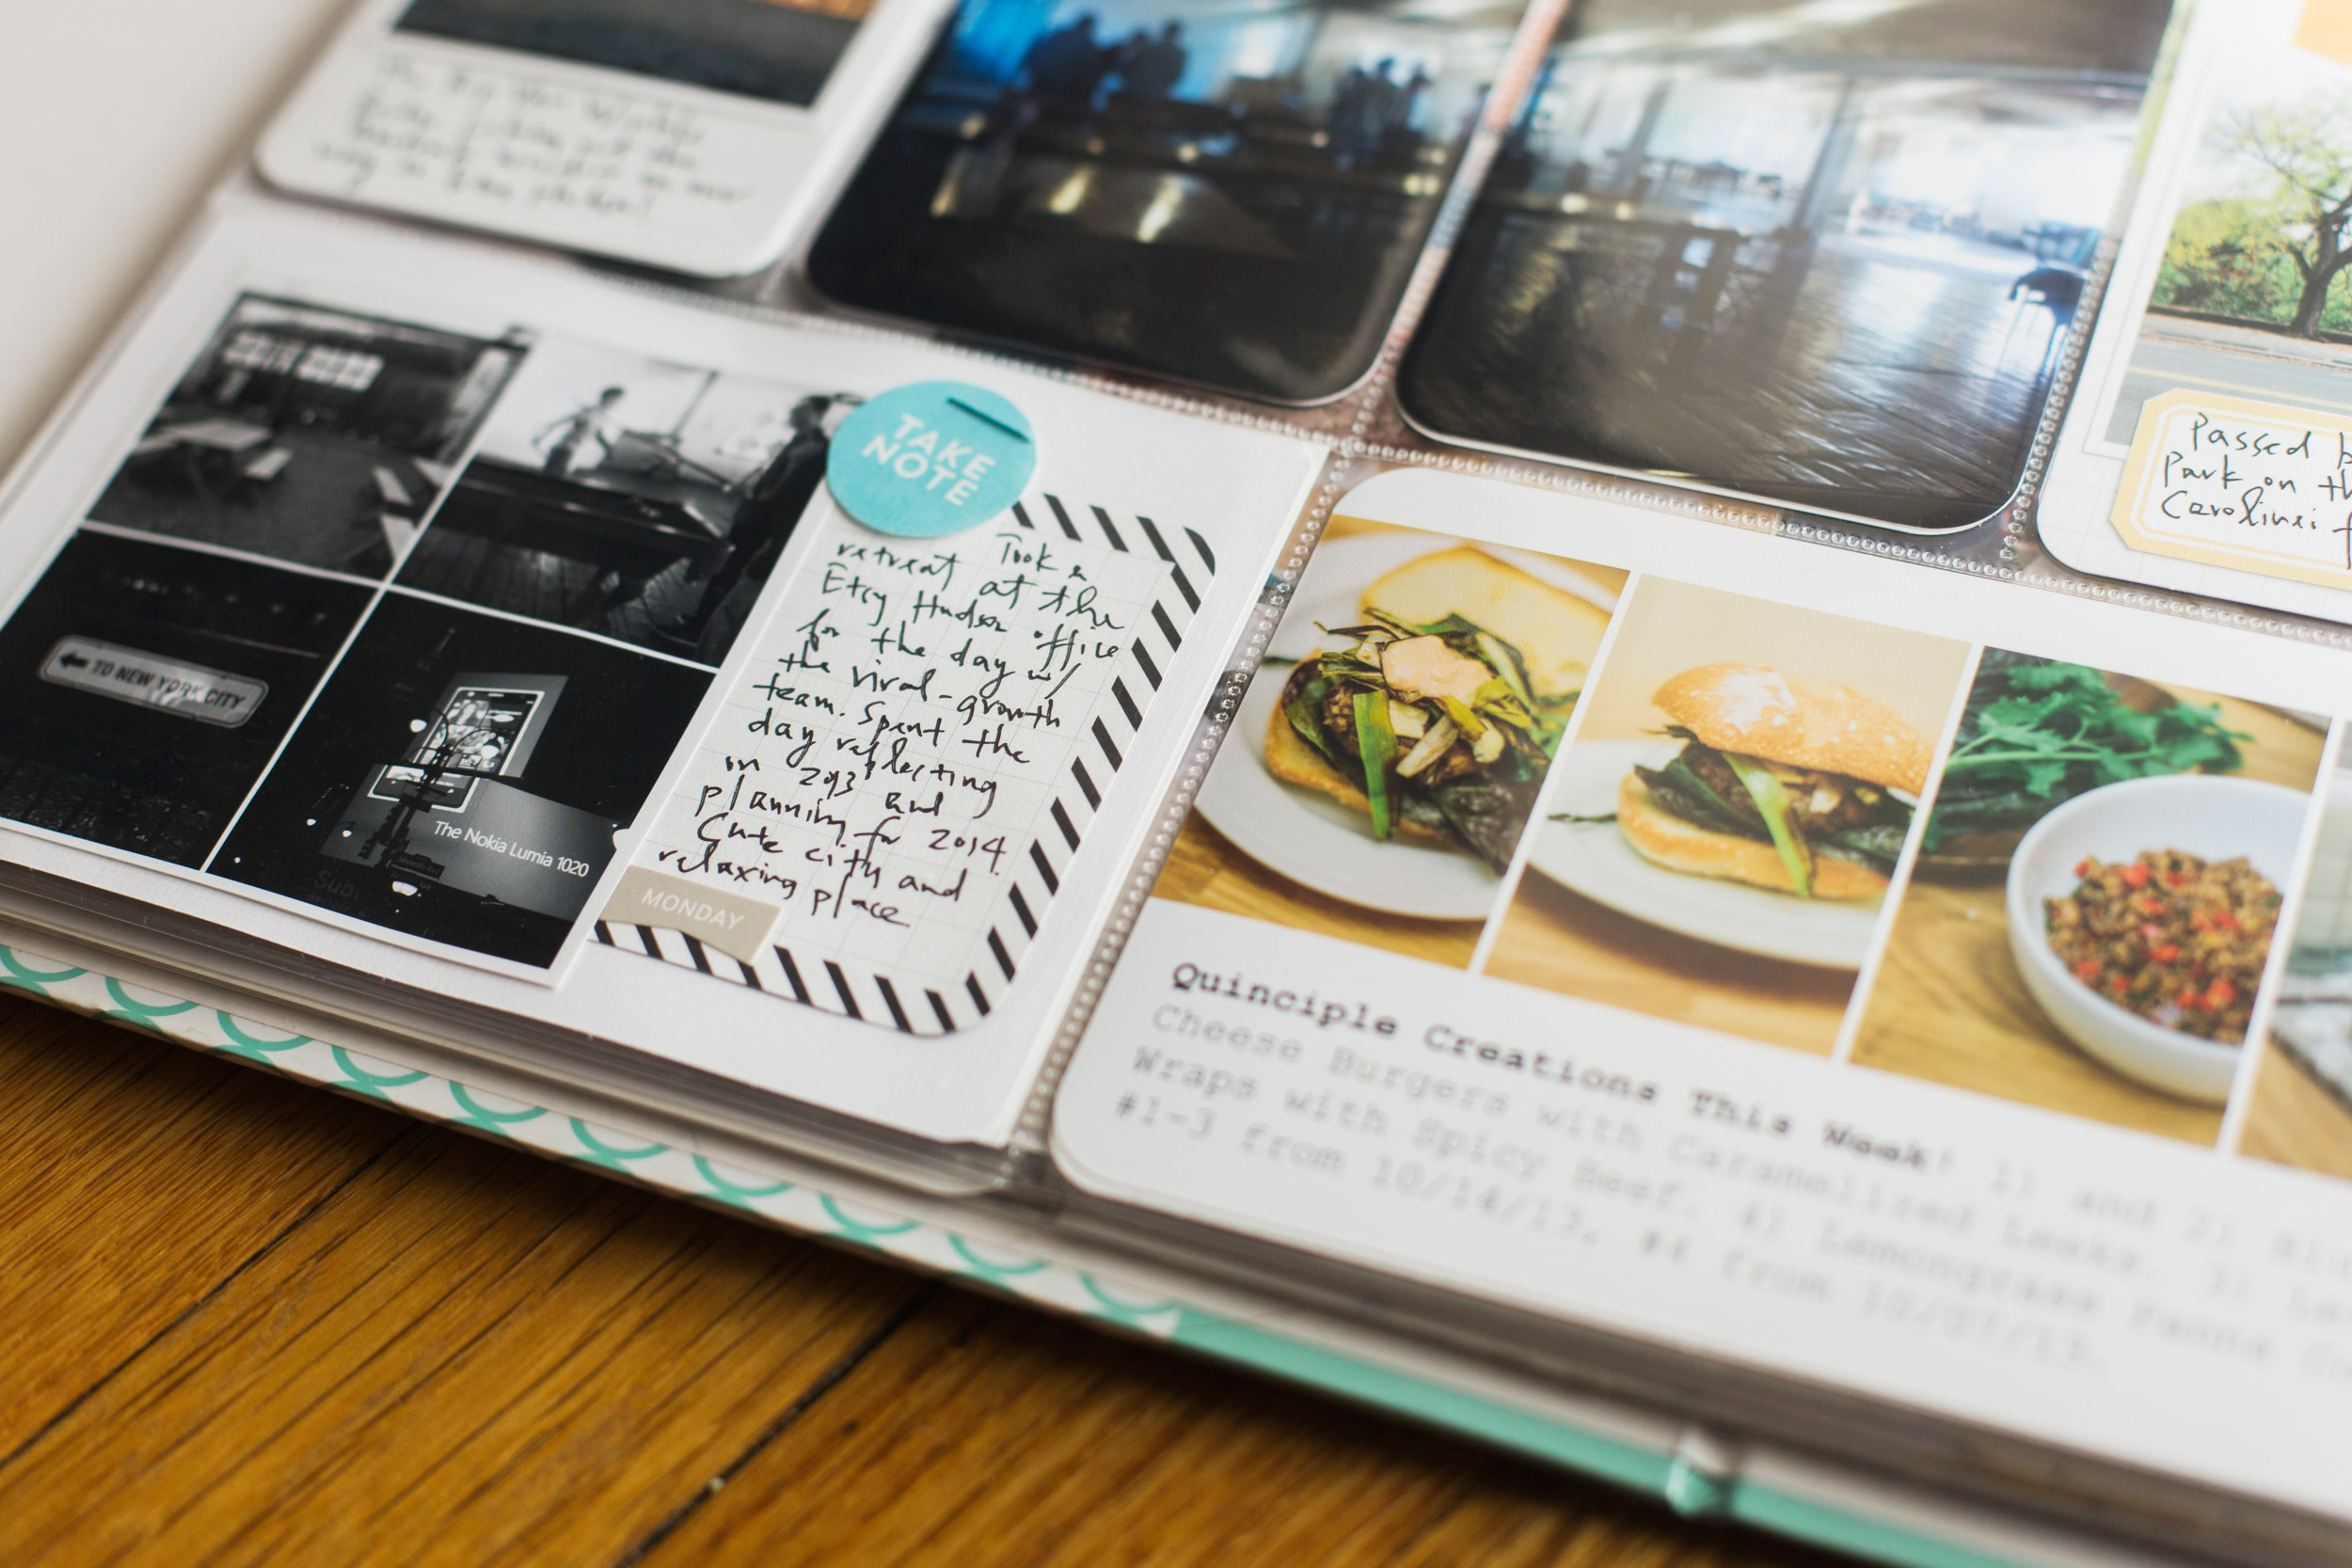 TAKE
NOTE
Took a
retreat at the
Etsy Hudson office
for the day w/
the viral-growth
team. Spent the
day reflecting
on 2013 and
planning for 2014.
Cute city and
relaxing place
MONDAY
TO NEW YORK CITY
The Nokia Lumia 1020
Subw
Passed b
Park on th
Quinciple Creations This Week! 1) and 2)
Cheese Burgers with Caramelized Leeks. 3)
Wraps with Spicy Beef. 4) Lemongrass Panna
#1-3 from 10/14/13, #4 from 10/07/13.